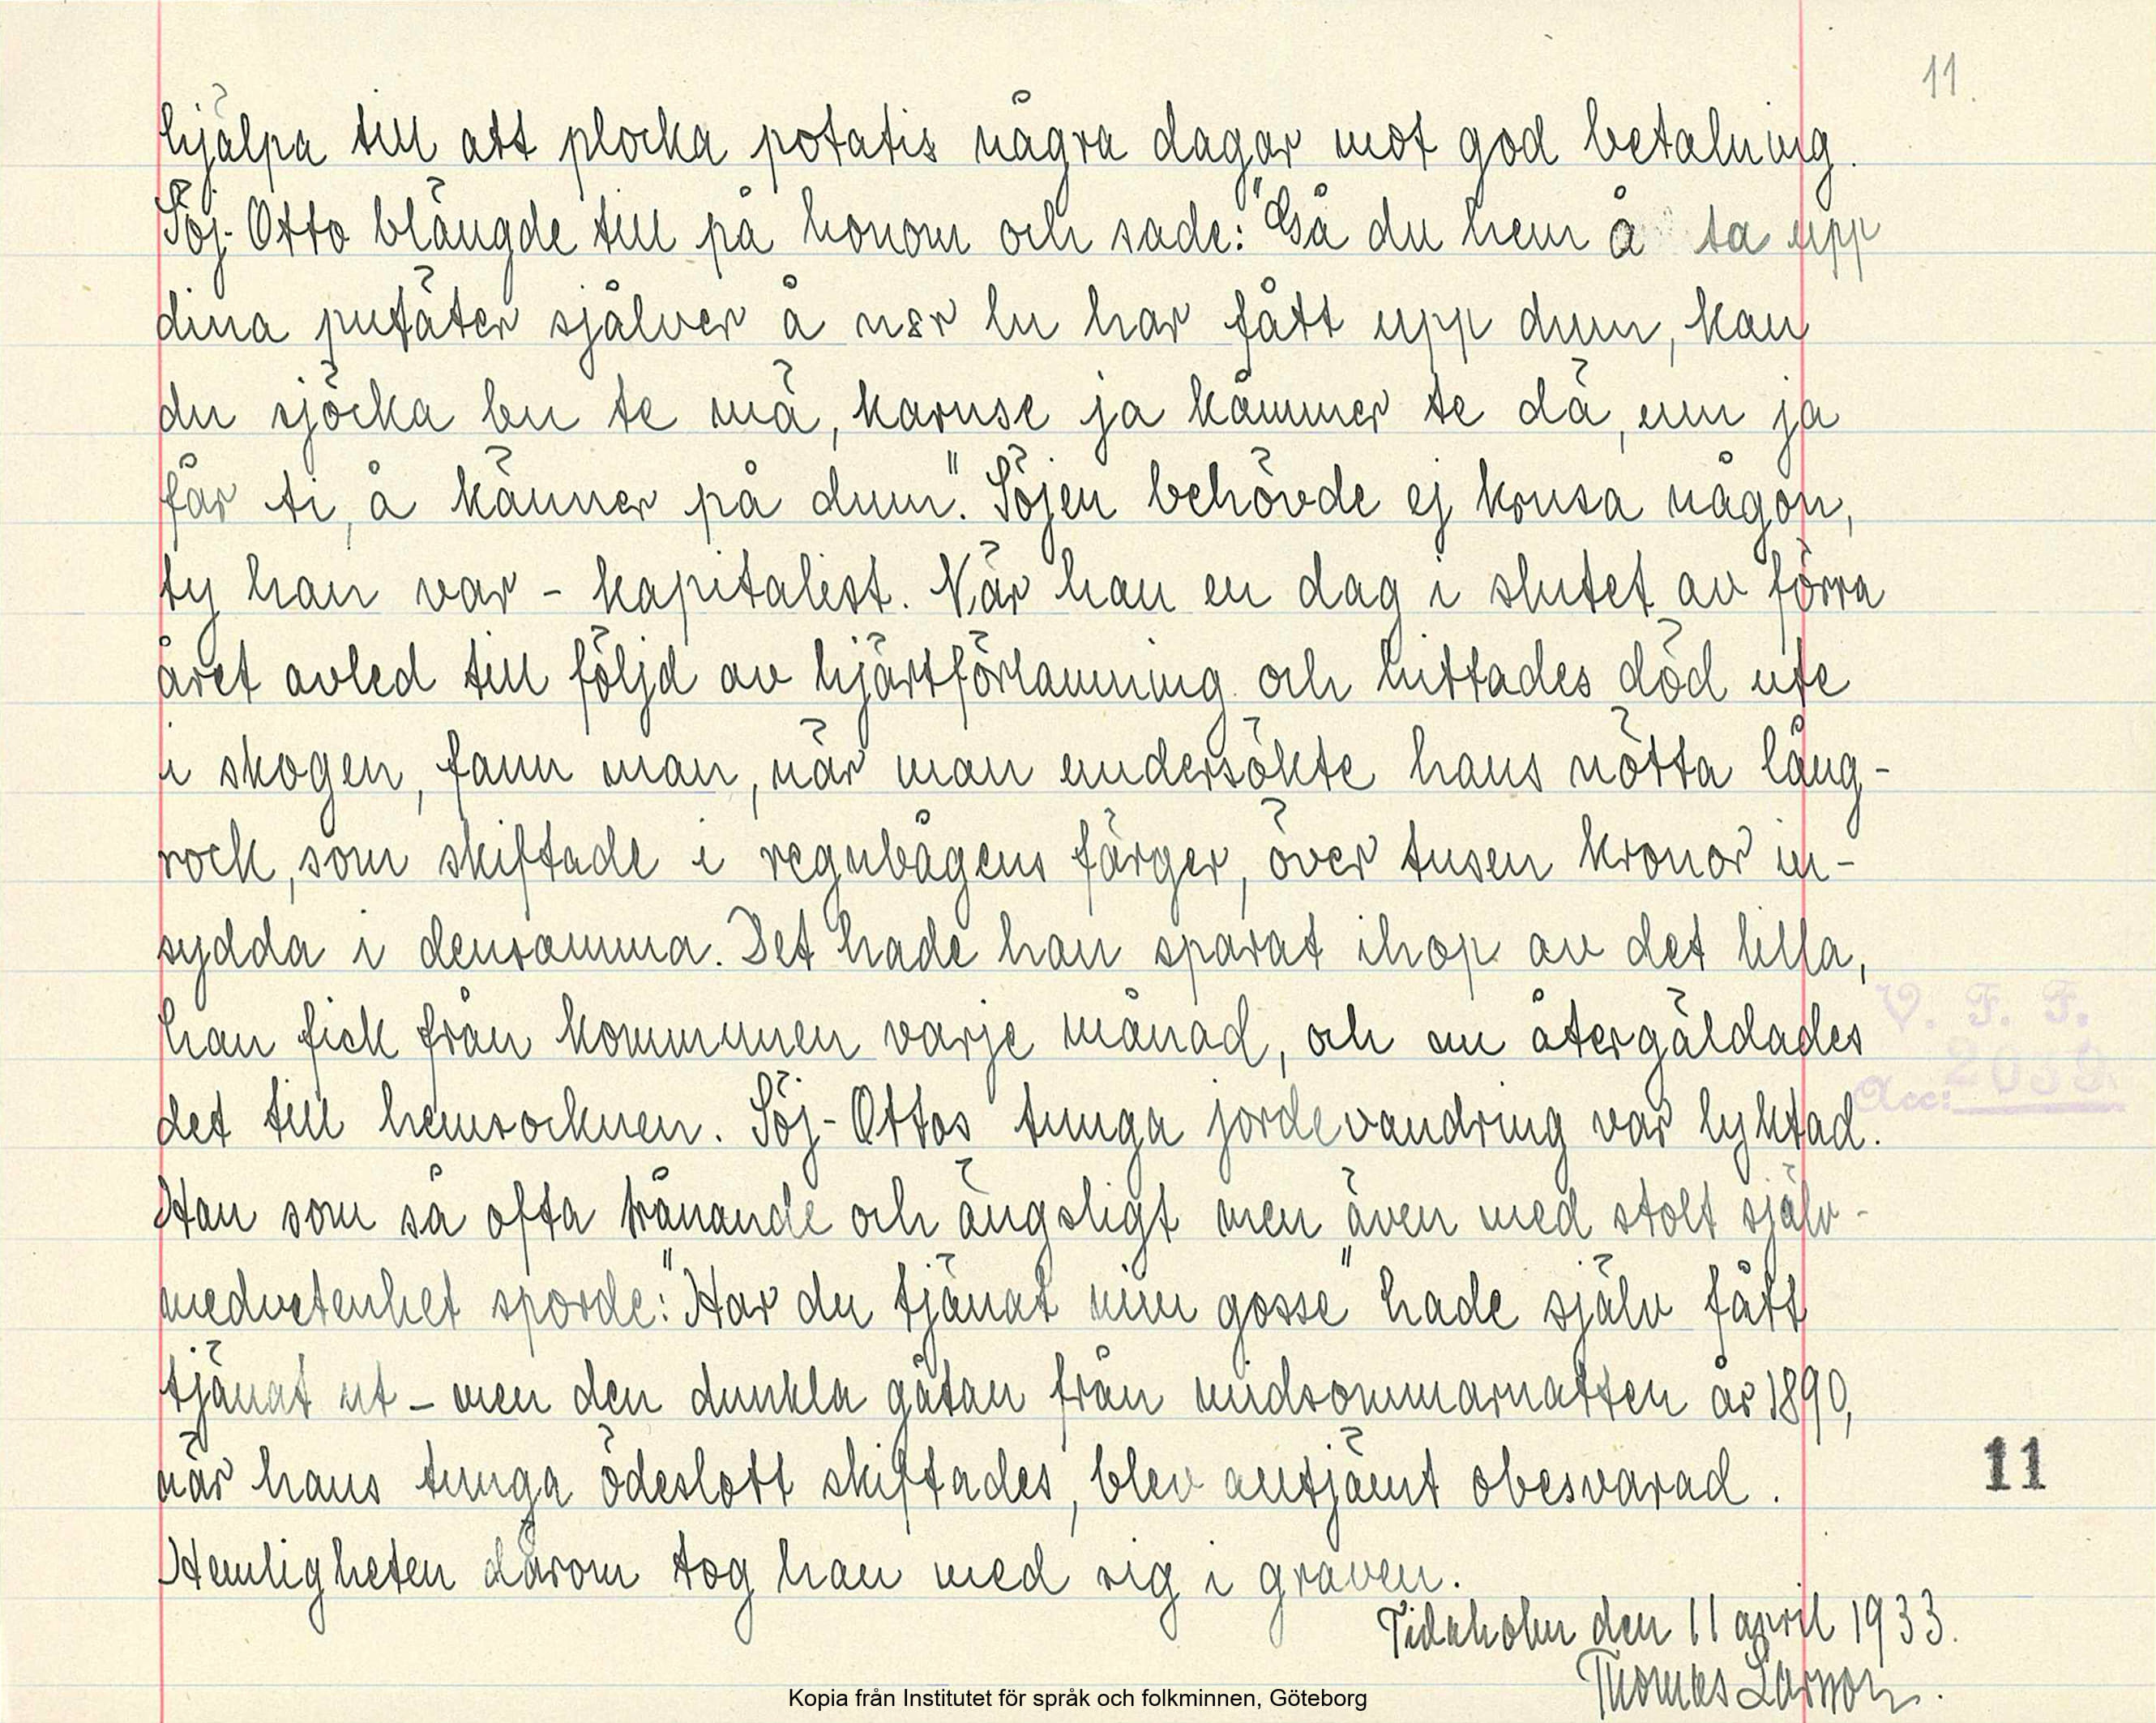 11.
hjälpa till att plocka potatis några dagar mot god betalning.
Söj-Otto blängde till på honom och sade: "Gå du hem å ta upp
dina putäter själver å när du har fått upp dum, kan
du sjöcka bu te mä, kanse ja kämmer te dä, um ja
får ti, å känner på dum". Söjen behövde ej krusa någon,
ty han var - kapitalist. När han en dag i slutet av förra
året avled till följd av hjärtförlamning och hittades död ute
i skogen, fann man, när man undersökte hans nötta lång-
rock, som skiftade i regnbågens färger, över tusen kronor in-
sydda i densamma. Det hade han sparat ihop av det lilla,
han fick från kommunen varje månad, och nu återgäldades
det till hemsocknen. Söj-Ottos tunga jordevandring var lyktad.
Han som så ofta trånande och ängsligt men även med stolt själv-
medvetenhet sporde: "Har du tjänat min gosse" hade själv fått
tjänat ut - men den dunkla gåtan från midsommarnatten år 1890,
när hans tunga ödeslott skiftades, blev alltjämt obesvarad.
Hemligheten därom tog han med sig i graven.
Tidaholm den 11 april 1933.
Thomas Larson.
V. F. F.
Acc: 2039
11
Kopia från Institutet för språk och folkminnen, Göteborg